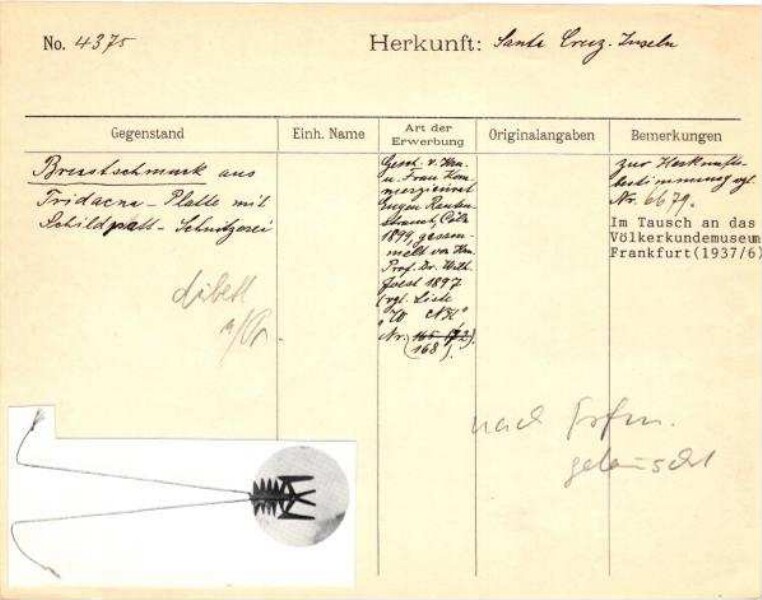 No. 4375
Herkunft: Santa Cruz-Inseln
Gegenstand
Einh. Name
Art der
Erwerbung
Originalangaben
Bemerkungen
Brustschmuck aus
Tridacna-Platte mit
Schildpatt-Schnitzerei
Gesch. v. Hrn.
u. Frau Kom-
merzienrat
Eugen Rauten-
strauch, Cöln
1899, gesam-
melt von Hrn.
Prof. Dr. Wilh.
Joest 1897
(vgl. Liste
Nr. 165 (72)
(168).
zur Herkunfts-
bestimmung vgl.
Nr. 6679.
Im Tausch an das
Völkerkundemuseum
Frankfurt(1937/6)
nach
getauscht